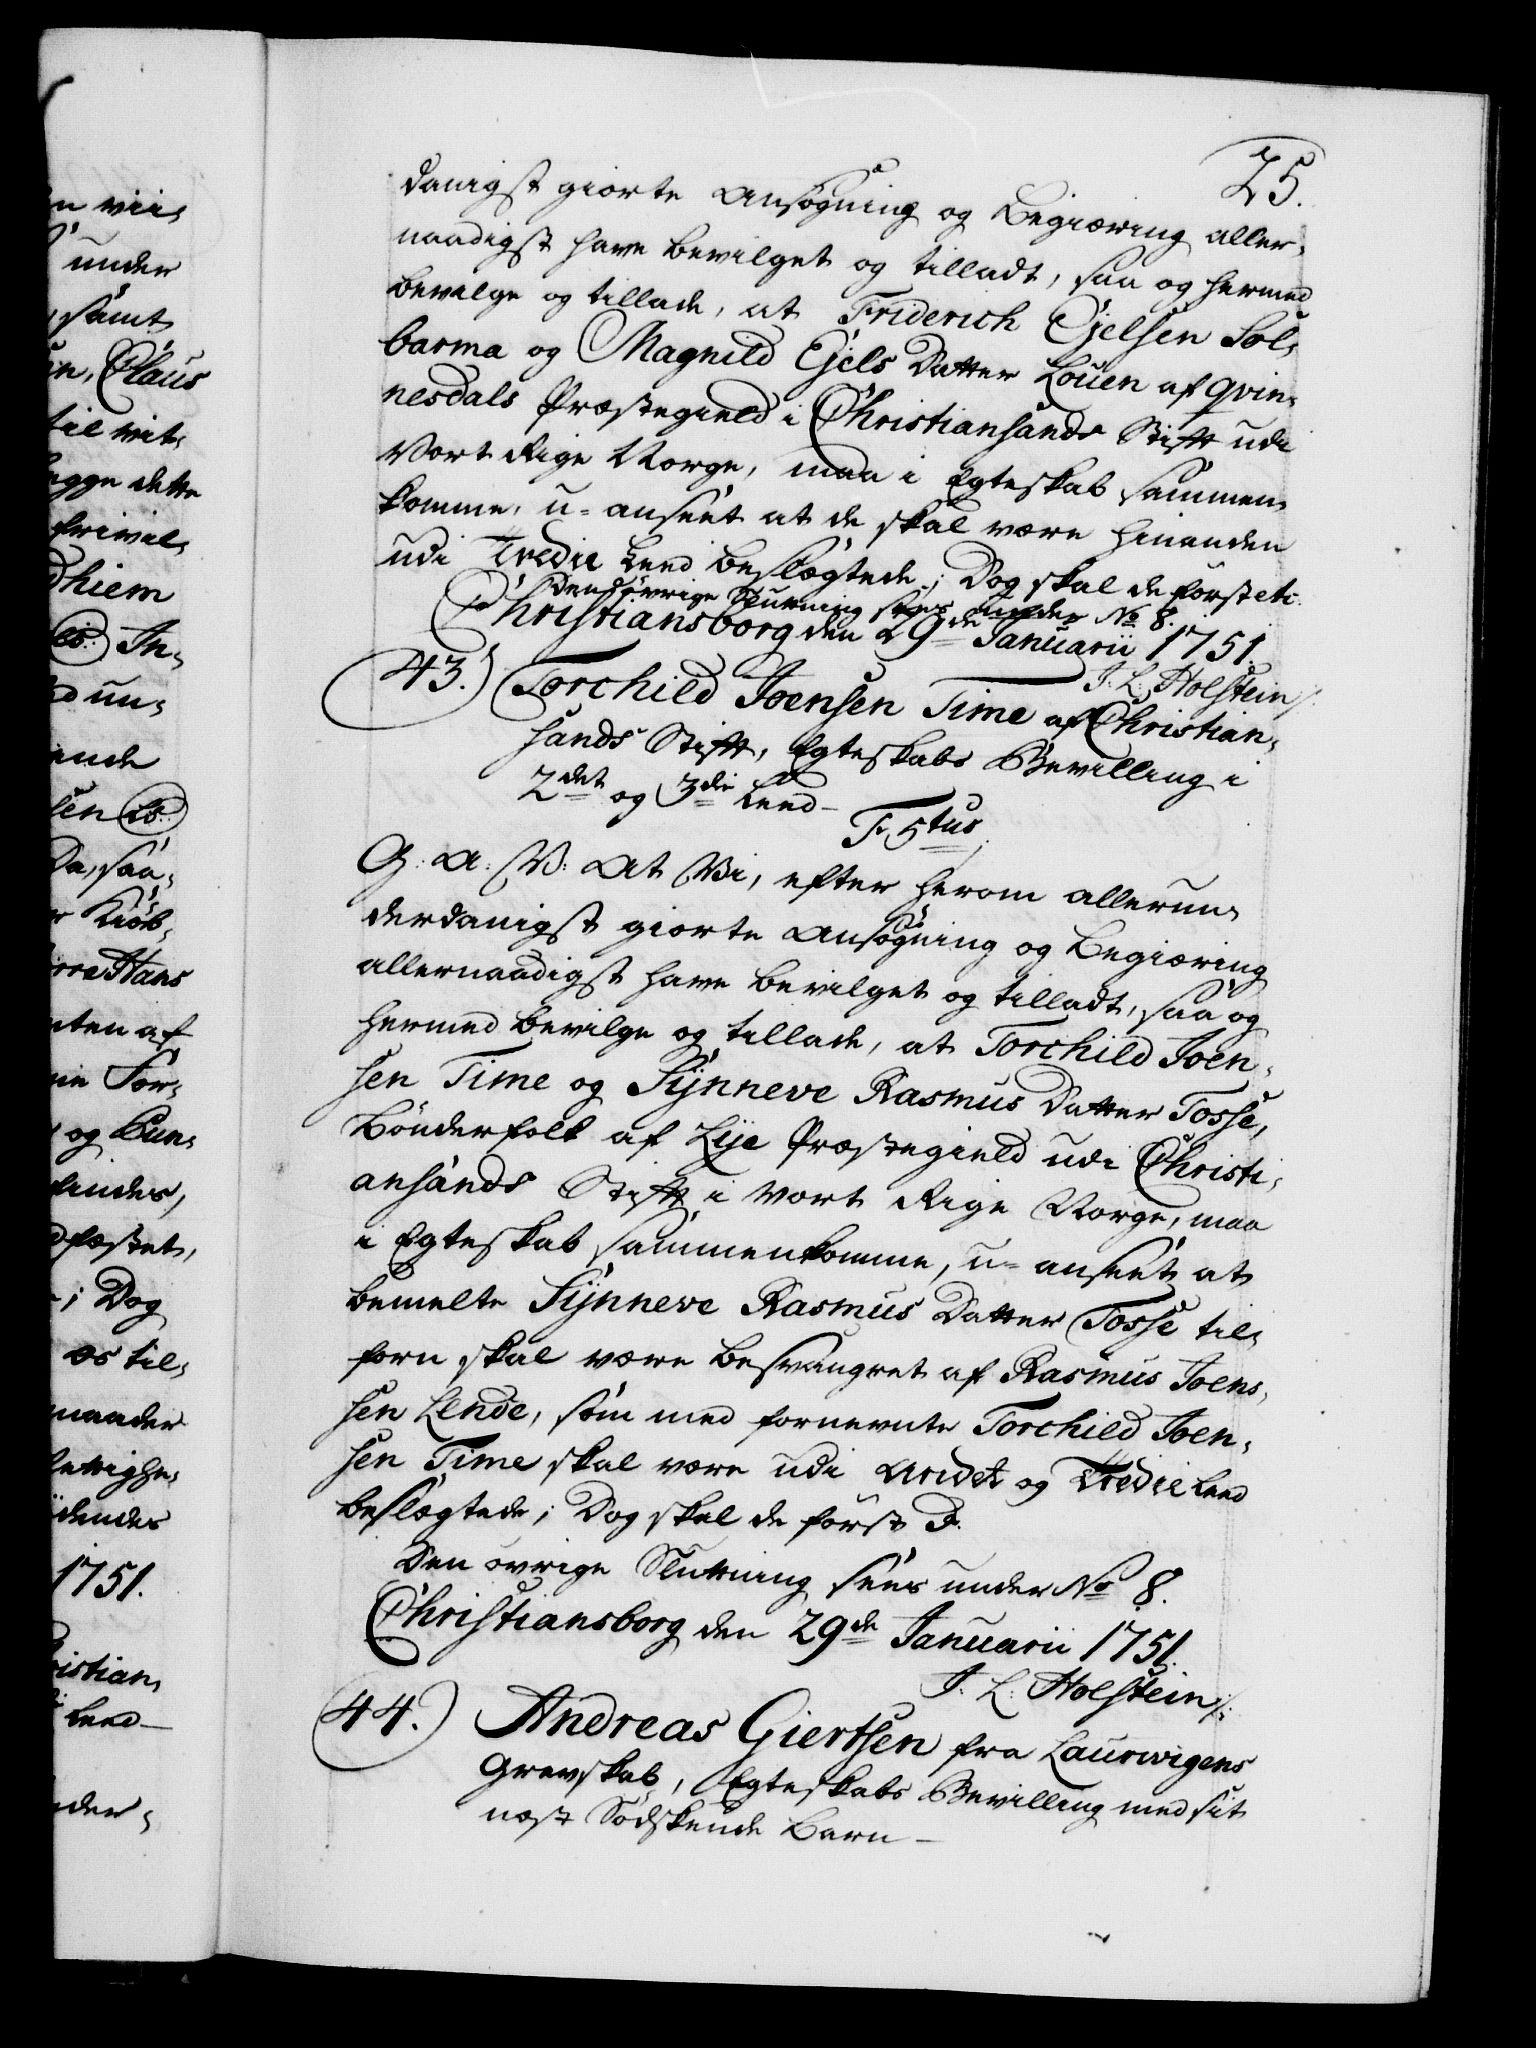 25.
danigst giorte Ansøgning og Begiæring aller,
naadigst have bevilget og tilladt, saa og hermed
bevilge og tillade, at Friderich Ejelsen Sol,
barma og Magnild Ejels Datter Louen af qvin,
nesdals Præstegield i Christiansands Stift udi
Vort Rige Norge, maa i Egteskab sammen,
komme, u-anseet at de skal være hinanden
udi Tredie Leed beslægtede; Dog skal de først etc.
Den øvrige Slutning sees under No 8.
Christiansborg den 29de Januarii 1751.
J. L. Holstein /.
43.) Torchild Joensen Time af Christian,
sands Stift, Egteskabs Bevilling i
2det og 3die Leed —
F. 5tus
G: A: V: At Vi, efter herom allerun,
derdanigst giorte Ansøgning og Begiæring
allernaadigst have bevilget og tilladt, saa og
hermed bevilge og tillade, at Torchild Joen,
sen Time og Sÿnneve Rasmus Datter Tosse,
Bønderfolk af Lÿe Præstegield udi Christi,
ansands Stift i Vort Rige Norge, maa
i Egteskab sammenkomme, u-anseet at
bemelte Sÿnneve Rasmus Datter Tosse til,
forn skal være besvangret af Rasmus Joens,
sen Lende, som med fornevnte Torchild Joen,
sen Time skal være udi Andet og Tredie Leed
beslægtede; Dog skal de først &.
Den øvrige Slutning sees under No 8.
Christiansborg den 29de Januarii 1751.
J. L. Holstein /:
44.) Andreas Giertsen fra Laurwigens
Grevskab, Egteskabs Bevilling med sit
næst Sødskende Barn —